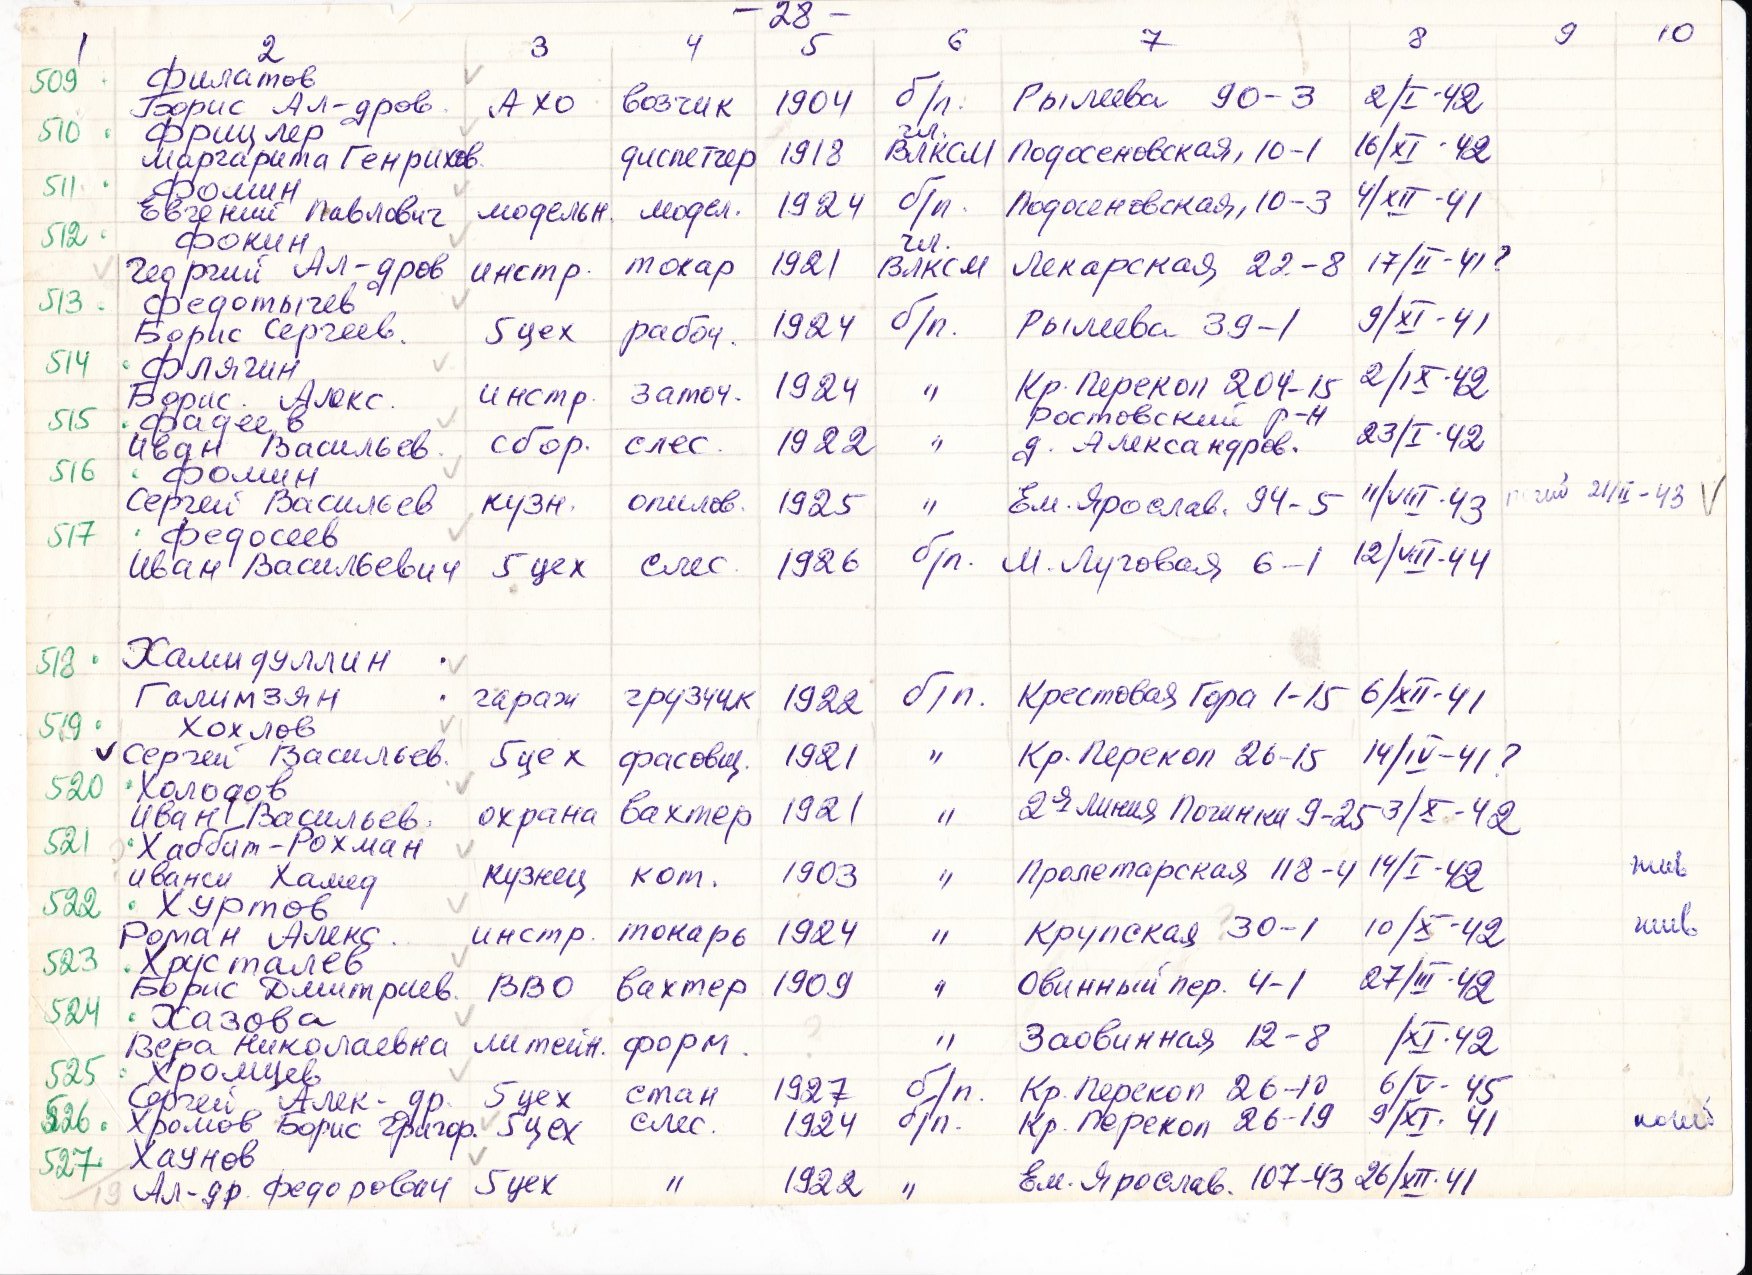 - 28 -
1 2 3 4 5 6 7 8 9 10
509 Филатов
Борис Ал-дров. АХО возчик 1904 б/п. Рылеева 90-3 2/I-42
510 Фрицлер чл.
Маргарита Генрихов. диспетчер 1918 ВЛКСМ Подосеновская, 10-1 16/XI-42
511 Фомин
Евгений Павлович модельн. модел. 1924 б/п. Подосеновская, 10-3 4/XII-41
512 Фокин чл.
Георгий Ал-дров инстр. токар 1921 ВЛКСМ Лекарская 22-8 17/II-41?
513 Федотычев
Борис Сергеев. 5 цех рабоч. 1924 б/п. Рылеева 39-1 9/XI-41
514 Флягин
Борис. Алекс. инстр. заточ. 1924 " Кр. Перекоп 204-15 2/IX-42
515 Фадеев Ростовский р-н
Иван Васильев. сбор. слес. 1922 " д. Александров. 23/I-42
516 Фомин
Сергей Васильев кузн. опилов. 1925 " Ем. Ярослав. 94-5 11/VIII-43 21/II-43
517 Федосеев
Иван Васильевич 5 цех слес. 1926 б/п. М. Луговая 6-1 12/VIII-44
518 Хамидуллин
Галимзян гараж грузчик 1922 б/п. Крестовая Гора 1-15 6/XII-41
519 Хохлов
Сергей Васильев. 5 цех фасовщ. 1921 " Кр. Перекоп 26-15 14/IV-41?
520 Холодов
Иван Васильев. охрана вахтер 1921 " 2я линия Починки 9-25 3/X-42
521 Хаббит-Рохман
Иванси Хамед кузнец кот. 1903 " Пролетарская 118-4 14/I-42 жив
522 Хуртов
Роман Алекс. инстр. токарь 1924 " Крупская 30-1 10/X-42 жив
523 Хрусталев
Борис Дмитриев. ВВО вахтер 1909 " Овинный пер. 4-1 27/III-42
524 Хазова
Вера Николаевна литейн. форм. ? " Заовинная 12-8 /XI-42
525 Хромцев
Сергей Алек-др. 5 цех стан 1927 б/п. Кр. Перекоп 26-10 6/V-45
526 Хромов Борис Григор. 5 цех слес. 1924 б/п. Кр. Перекоп 26-19 9/XI-41
527 Хаунов
Ал-др. Федорович 5 цех " 1922 " Ем. Ярослав. 107-43 26/XII-41